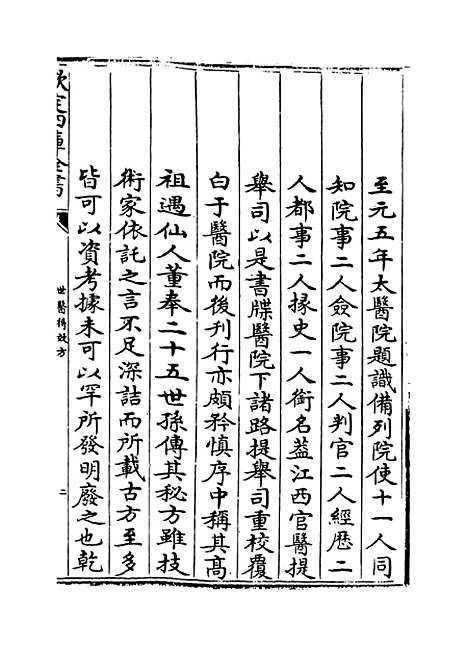 至元五年太醫院題識備列院使十一人同
知院事二人僉院事二人判官二人經歷二
人都事二人掾史一人銜名葢江西官醫提
舉司以是書牒醫院下諸路提舉司重校覆
白于醫院而後刊行亦頗矜慎序中稱其髙
祖遇仙人董奉二十五世孫傳其秘方雖技
術家依託之言不足深詰而所載古方至多
皆可以資考據未可以罕所發明廢之也乾
欽定四庫全書
世醫得效方
二